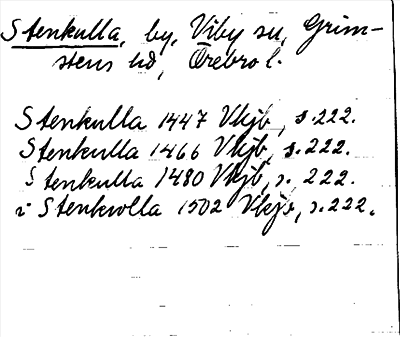 Stenkulla, by, Viby sn, Grim-
stens hd, Örebro l.
Stenkulla 1447 Vkjb, s.222.
Stenkulla 1466 Vkjb, s.222.
Stenkulla 1480 Vkjb, s. 222.
i Stenkwlla 1502 Vkjb, s.222.